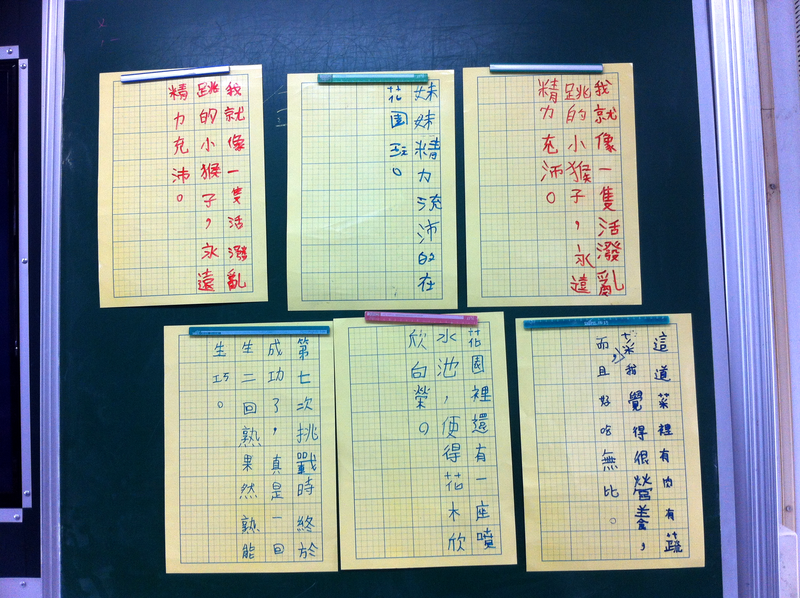 我就像一隻活潑亂
跳的小猴子，永遠
精力充沛。
妹妹精力流沛的在
花園玩。
我就像一隻活潑亂
跳的小猴子，永遠
精力充沛。
第七次挑戰時終於
成功了，真是一回
生二回熟果然熟能
生巧。
花園裡還有一座噴
水池，使得花木欣
欣向榮。
這道菜裡有肉有蔬
菜，我覺得很營養，
而且好吃無比。